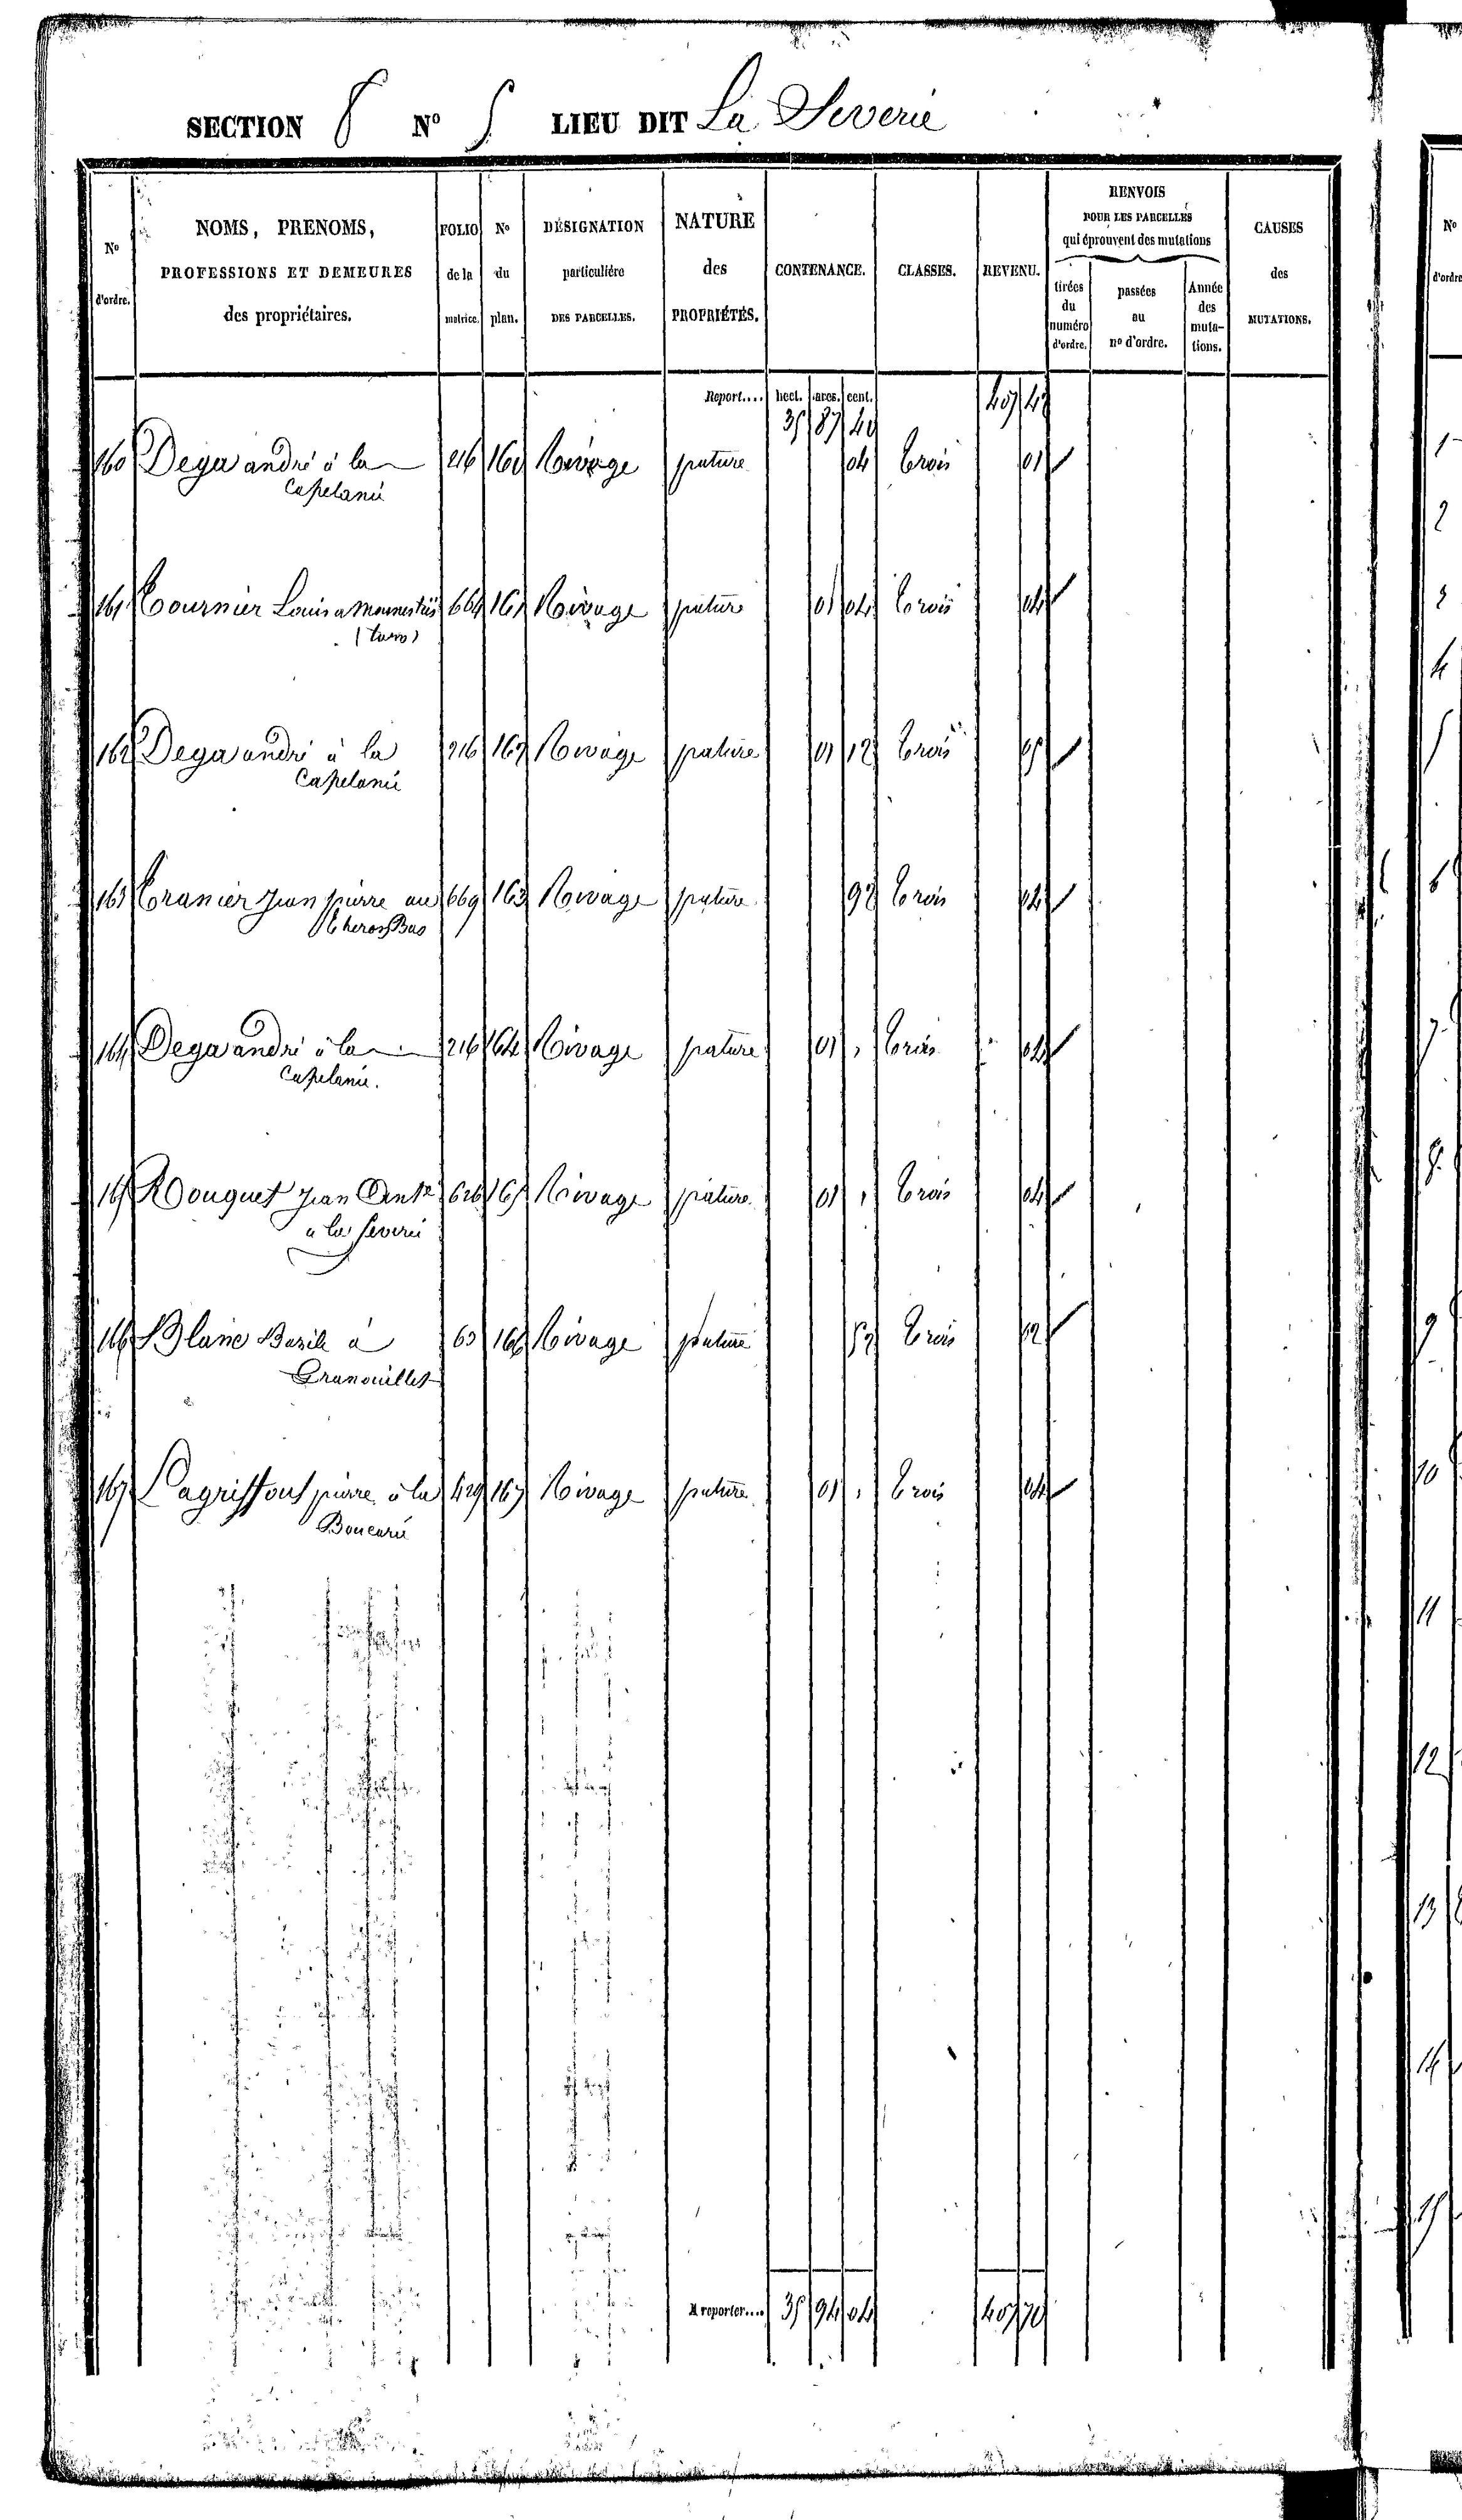 SECTION 8 N° 5 LIEU DIT La Severie
N° d'ordre.
NOMS, PRENOMS, PROFESSIONS ET DEMEURES des propriétaires.
FOLIO de la matrice.
N° du plan.
DÉSIGNATION particulière DES PARCELLES.
NATURE des PROPRIÉTÉS.
CONTENANCE.
CLASSES.
REVENU.
RENVOIS POUR LES PARCELLES qui éprouvent des mutations
tirées du numéro d'ordre.
passées au n° d'ordre.
Année des muta-tions.
CAUSES des MUTATIONS.
Report.... hect. ares. cent.
35 87 40
160 Dega andré à la 216 160 Rivage pature 04 trois 01
Capelanié
161 Tournier Louis a 669 161 Rivage pature 01 04 trois 04
(Tarn)
162 Dega andré à la 216 162 Rivage pature 01 12 trois 05
Capelanié
163 Cranier Jean pierre au 669 163 Rivage pature 92 trois 04
Bas
164 Dega andré à la 216 164 Rivage pature 01 , trois 04
Capelanié.
165 Rouquet Jean Ante 626 165 Rivage pature 01 , trois 04
a la Severié
166 Blanc Bazile a 63 166 Rivage pature 52 trois 02
Granouillet
167 Lagriffoul pierre à la 429 167 Rivage pature 01 , trois 04
Boucarié
A reporter.... 35 94 04
N° d'ordre
1
2
3
4
5
6
7
8
9
10
11
12
13
14
15